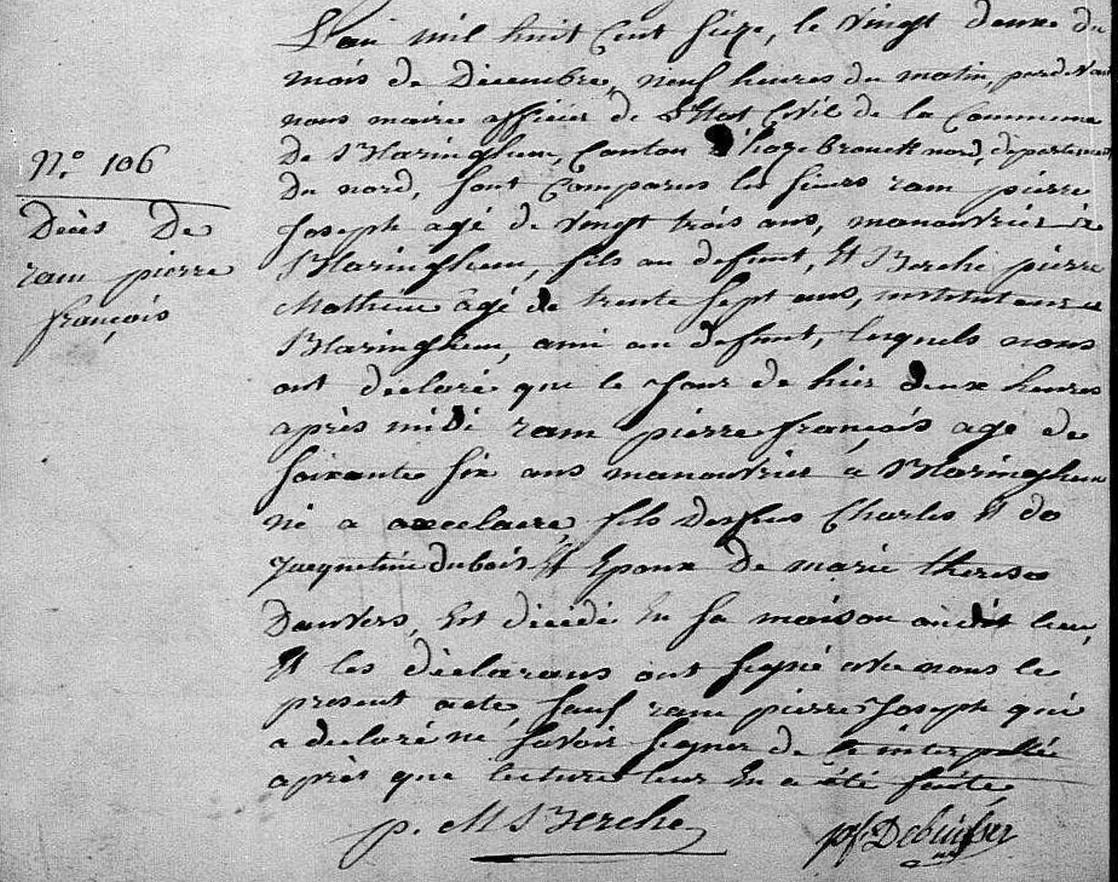 N.o 106
Décès De
ram pierre
françois
L'an mil huit Cent Seize, le vingt deux du
mois de Décembre, neuf heures du matin, pardevant
nous maire officier de L'Etat Civil de la Commune
De Blaringhem, Canton d'hazebrouck nord, département
Du nord, sont Comparus les sieurs ram pierre
Joseph agé de vingt trois ans, manouvrier à
Blaringhem, fils au défunt, Et Berche pierre
Mathieu agé de trente sept ans, instituteur a
Blaringhem, ami au défunt, lesquels nous
ont déclaré que le jour de hier deux heures
après midi ram pierre françois agé de
soixante six ans manouvrier a Blaringhem
né a fils Des feus Charles Et de
Jacqueline dubois Et Epoux De marie therese
Danvers, Est décédé En sa maison audit lieu,
Et les déclarans ont signé avec nous le
présent acte sauf ram pierre Joseph qui
a déclaré ne savoir signer de ce interpellé
après que lecture leur En a été faite
p. M Berche